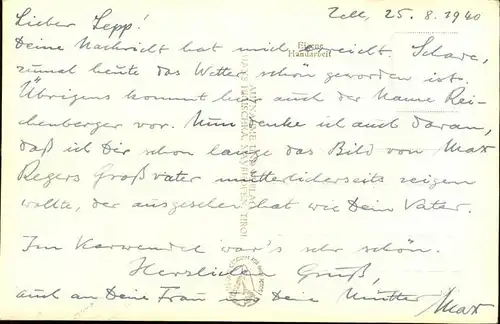 Zell, 25.8.1940
Lieber Sepp!
Eigene
Handarbeit
Deine Nachricht hat mich erreicht. Schade,
zumal heute das Wetter schön geworden ist.
Übrigens kommt hier auch der Name Rei-
chenberger vor. Nun denke ich auch daran,
daß ich Dir schon lange das Bild von Max
Regers Großvater mütterlicherseits zeigen
wollte, der ausgesehen hat wie Dein Vater.
Im Karwendel war's sehr schön.
Herzlichen Gruß,
auch an Deine Frau und Deine Mutter Max
MAYRHOFEN, TIROL